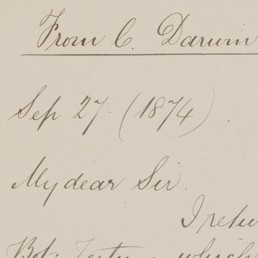 From C. Darwin
Sep 27. (1874).
My dear Sir.
I retu
Bot: which